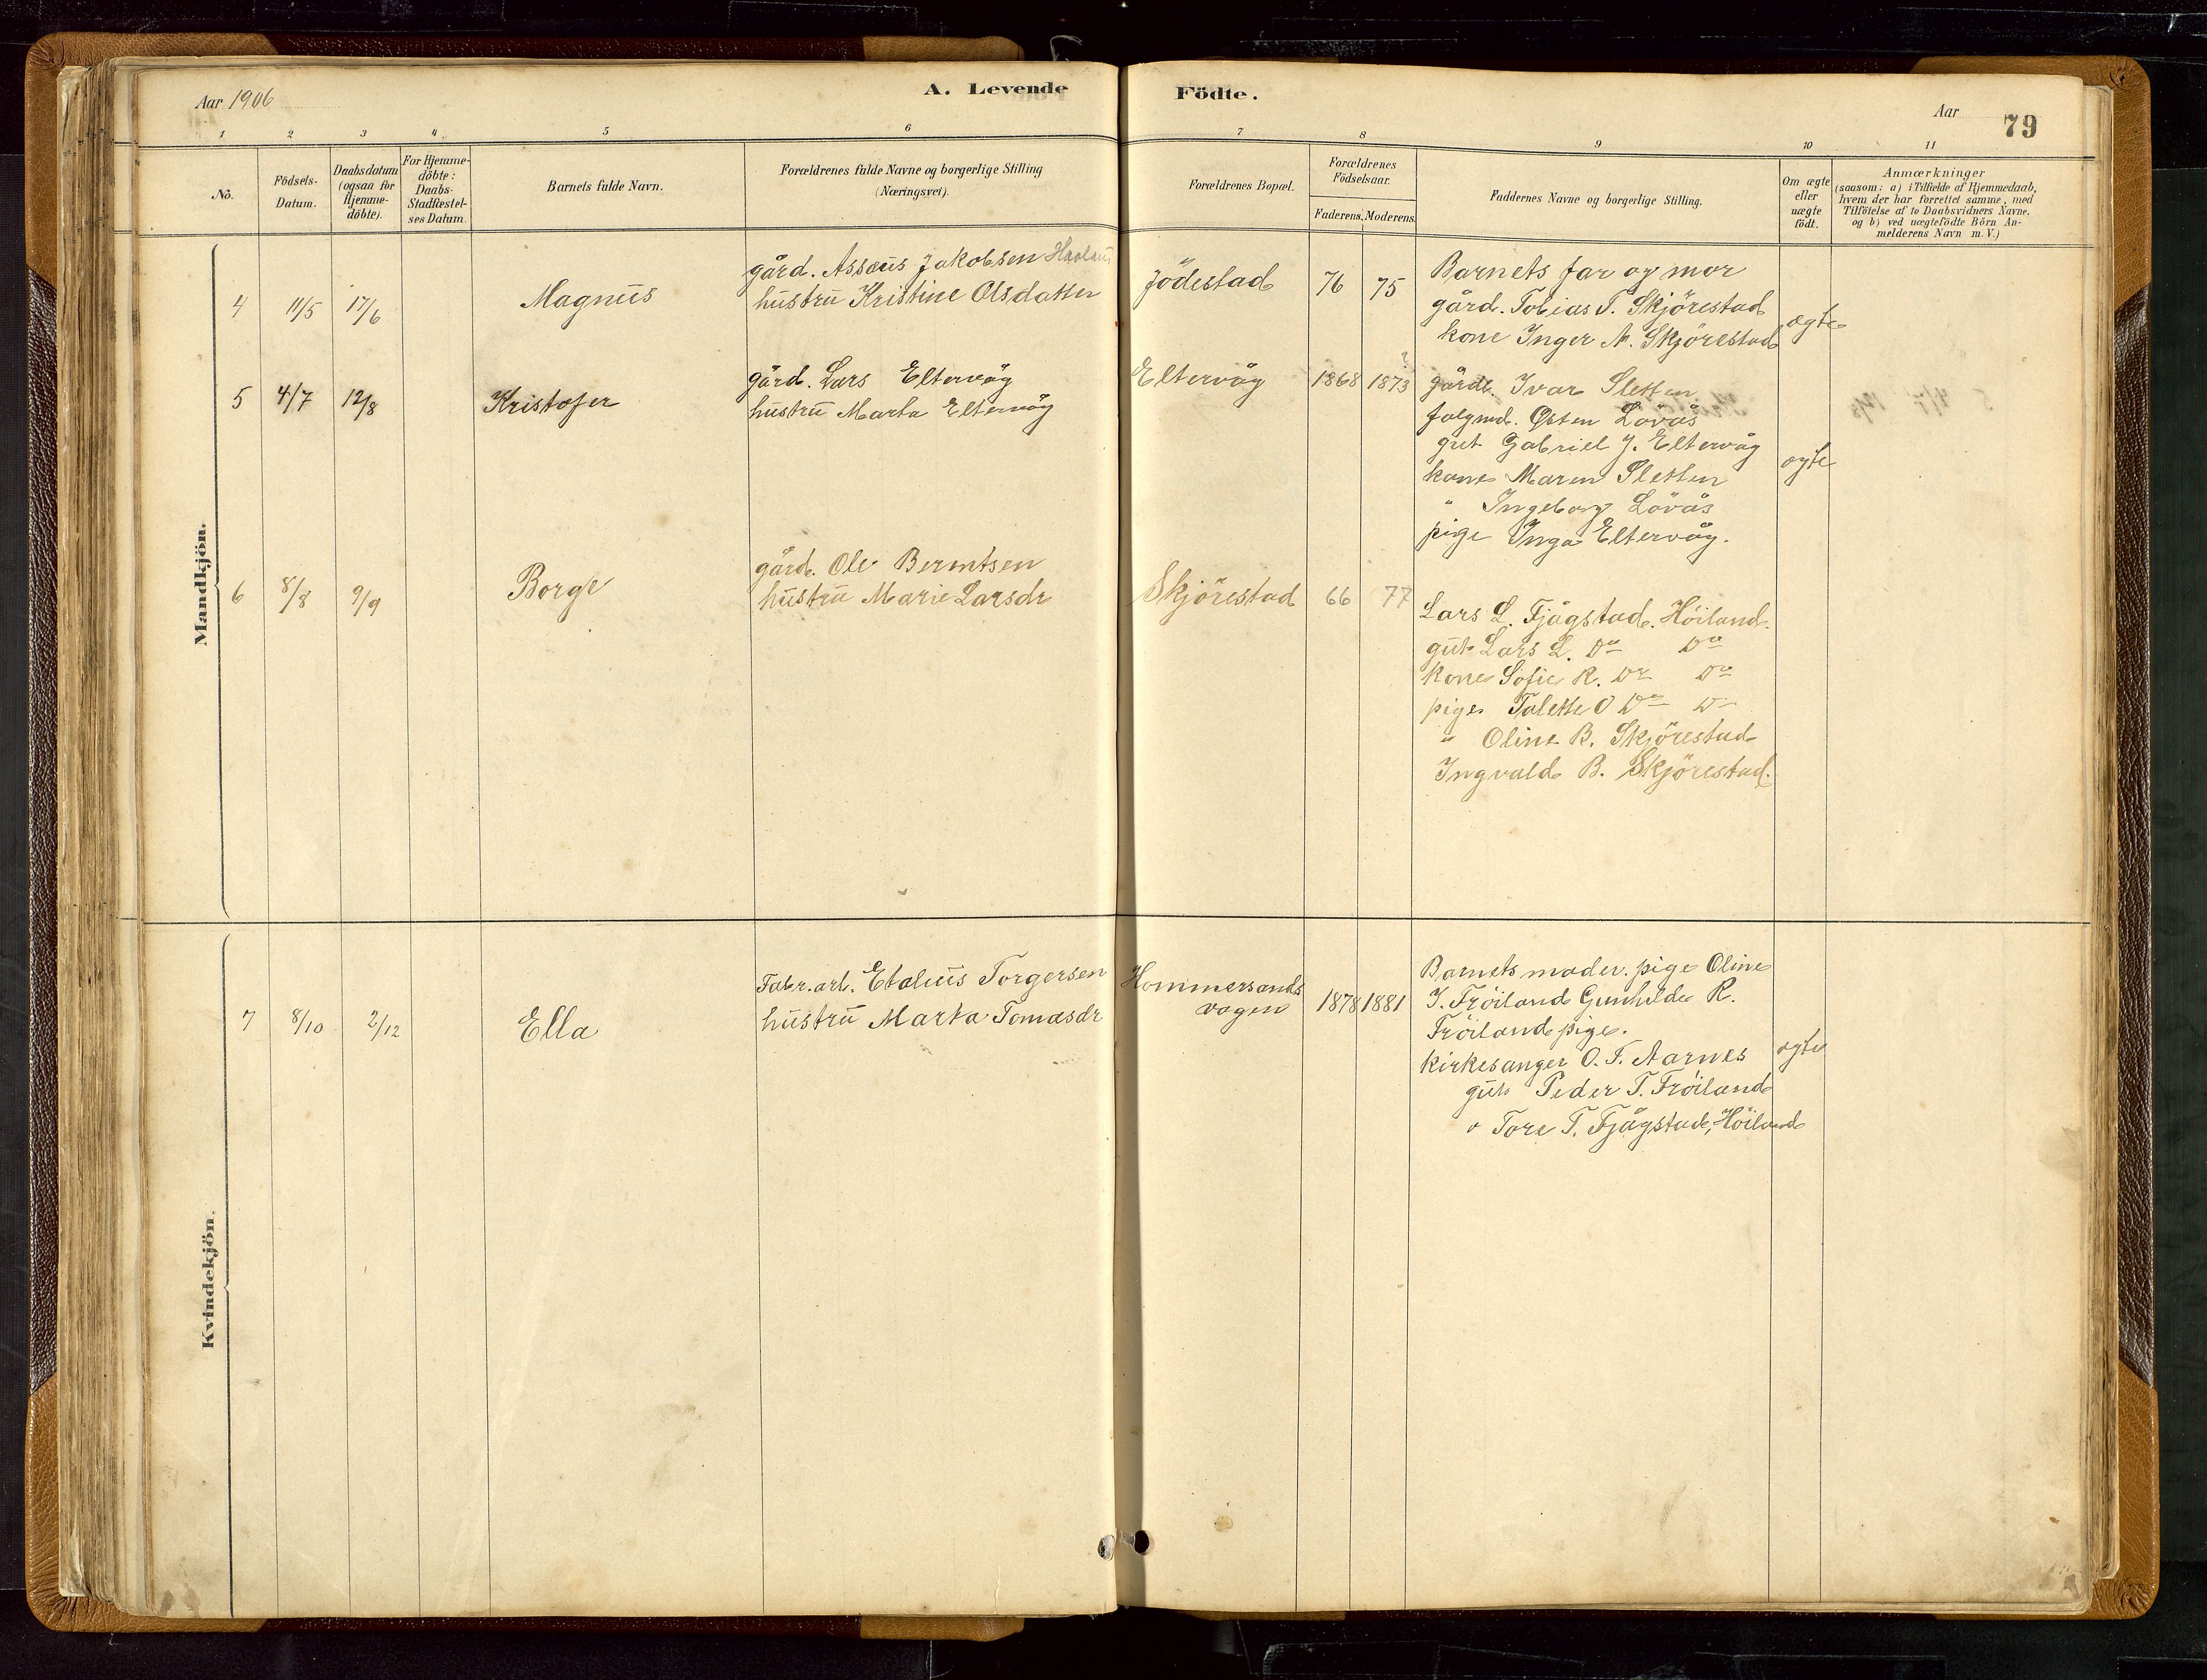 Aar 1906
A. Levende
Födte.
Aar
79
1 2 3 4 5 6 7 8 9 10 11
No.
Födsels-Datum.
Daabsdatum (ogsaa for Hjemme-döbte).
For Hjemme-döbte: Daabs-Stadfæstel-ses Datum.
Barnets fulde Navn.
Forældrenes fulde Navne og borgerlige Stilling (Næringsvei).
Forældrenes Bopæl.
Forældrenes Födselsaar.
Faderens.
Moderens.
Faddernes Navne og borgerlige Stilling.
Om ægte eller uægte födt.
Anmærkninger
(saasom: a) i Tilfælde af Hjemmedaab,
hvem der har forrettet samme, med
Tilföielse af to Daabsvidners Navne,
og b) ved uægtefödte Börn An-
melderens Navn m. V.)
Mandkjön.
4 11/5 17/6 Magnus
gård. Assæus Jakobsen
hustru Kristine Olsdatter
Jödestad 76 75
Barnets far og mor
gård. Tobias T. Skjörestad
kone Inger A. Skjörestad
ægte
5 4/7 12/8 Kristofer
gård. Lars Eltervåg
hustru Marta Eltervåg
Eltervåg 1868 1873 ?
gårdb. Ivar Sletten
folgmd. Östen Lövås
gut Gabriel J. Eltervåg
kone Maren Sletten
" Ingeborg Lövås
pige Inga Eltervåg.
ægte
6 8/8 9/9 Borge
gård. Ole Berentsen
hustru Marie Larsdr
Skjörestad 66 77
Lars L. Fjågstad. Höiland.
gut Lars L. Do Do
kone Sofie R. Do Do
pige Talette O Do Do
" Oline B. Skjörestad
Ingvald B. Skjörestad.
Kvindekjön.
7 8/10 2/12 Ella
Fabr.arb. Etalius Torgersen
hustru Marta Tomasdr
Hommersands
vagen 1878 1881
Barnets moder. pige Oline
J. Fröiland Gunhilde R.
Fröiland pige.
Kirkesanger O. F. Aarnes
gut Peder T. Fröiland
" Tore T. Fjågstad, Höiland
ægte